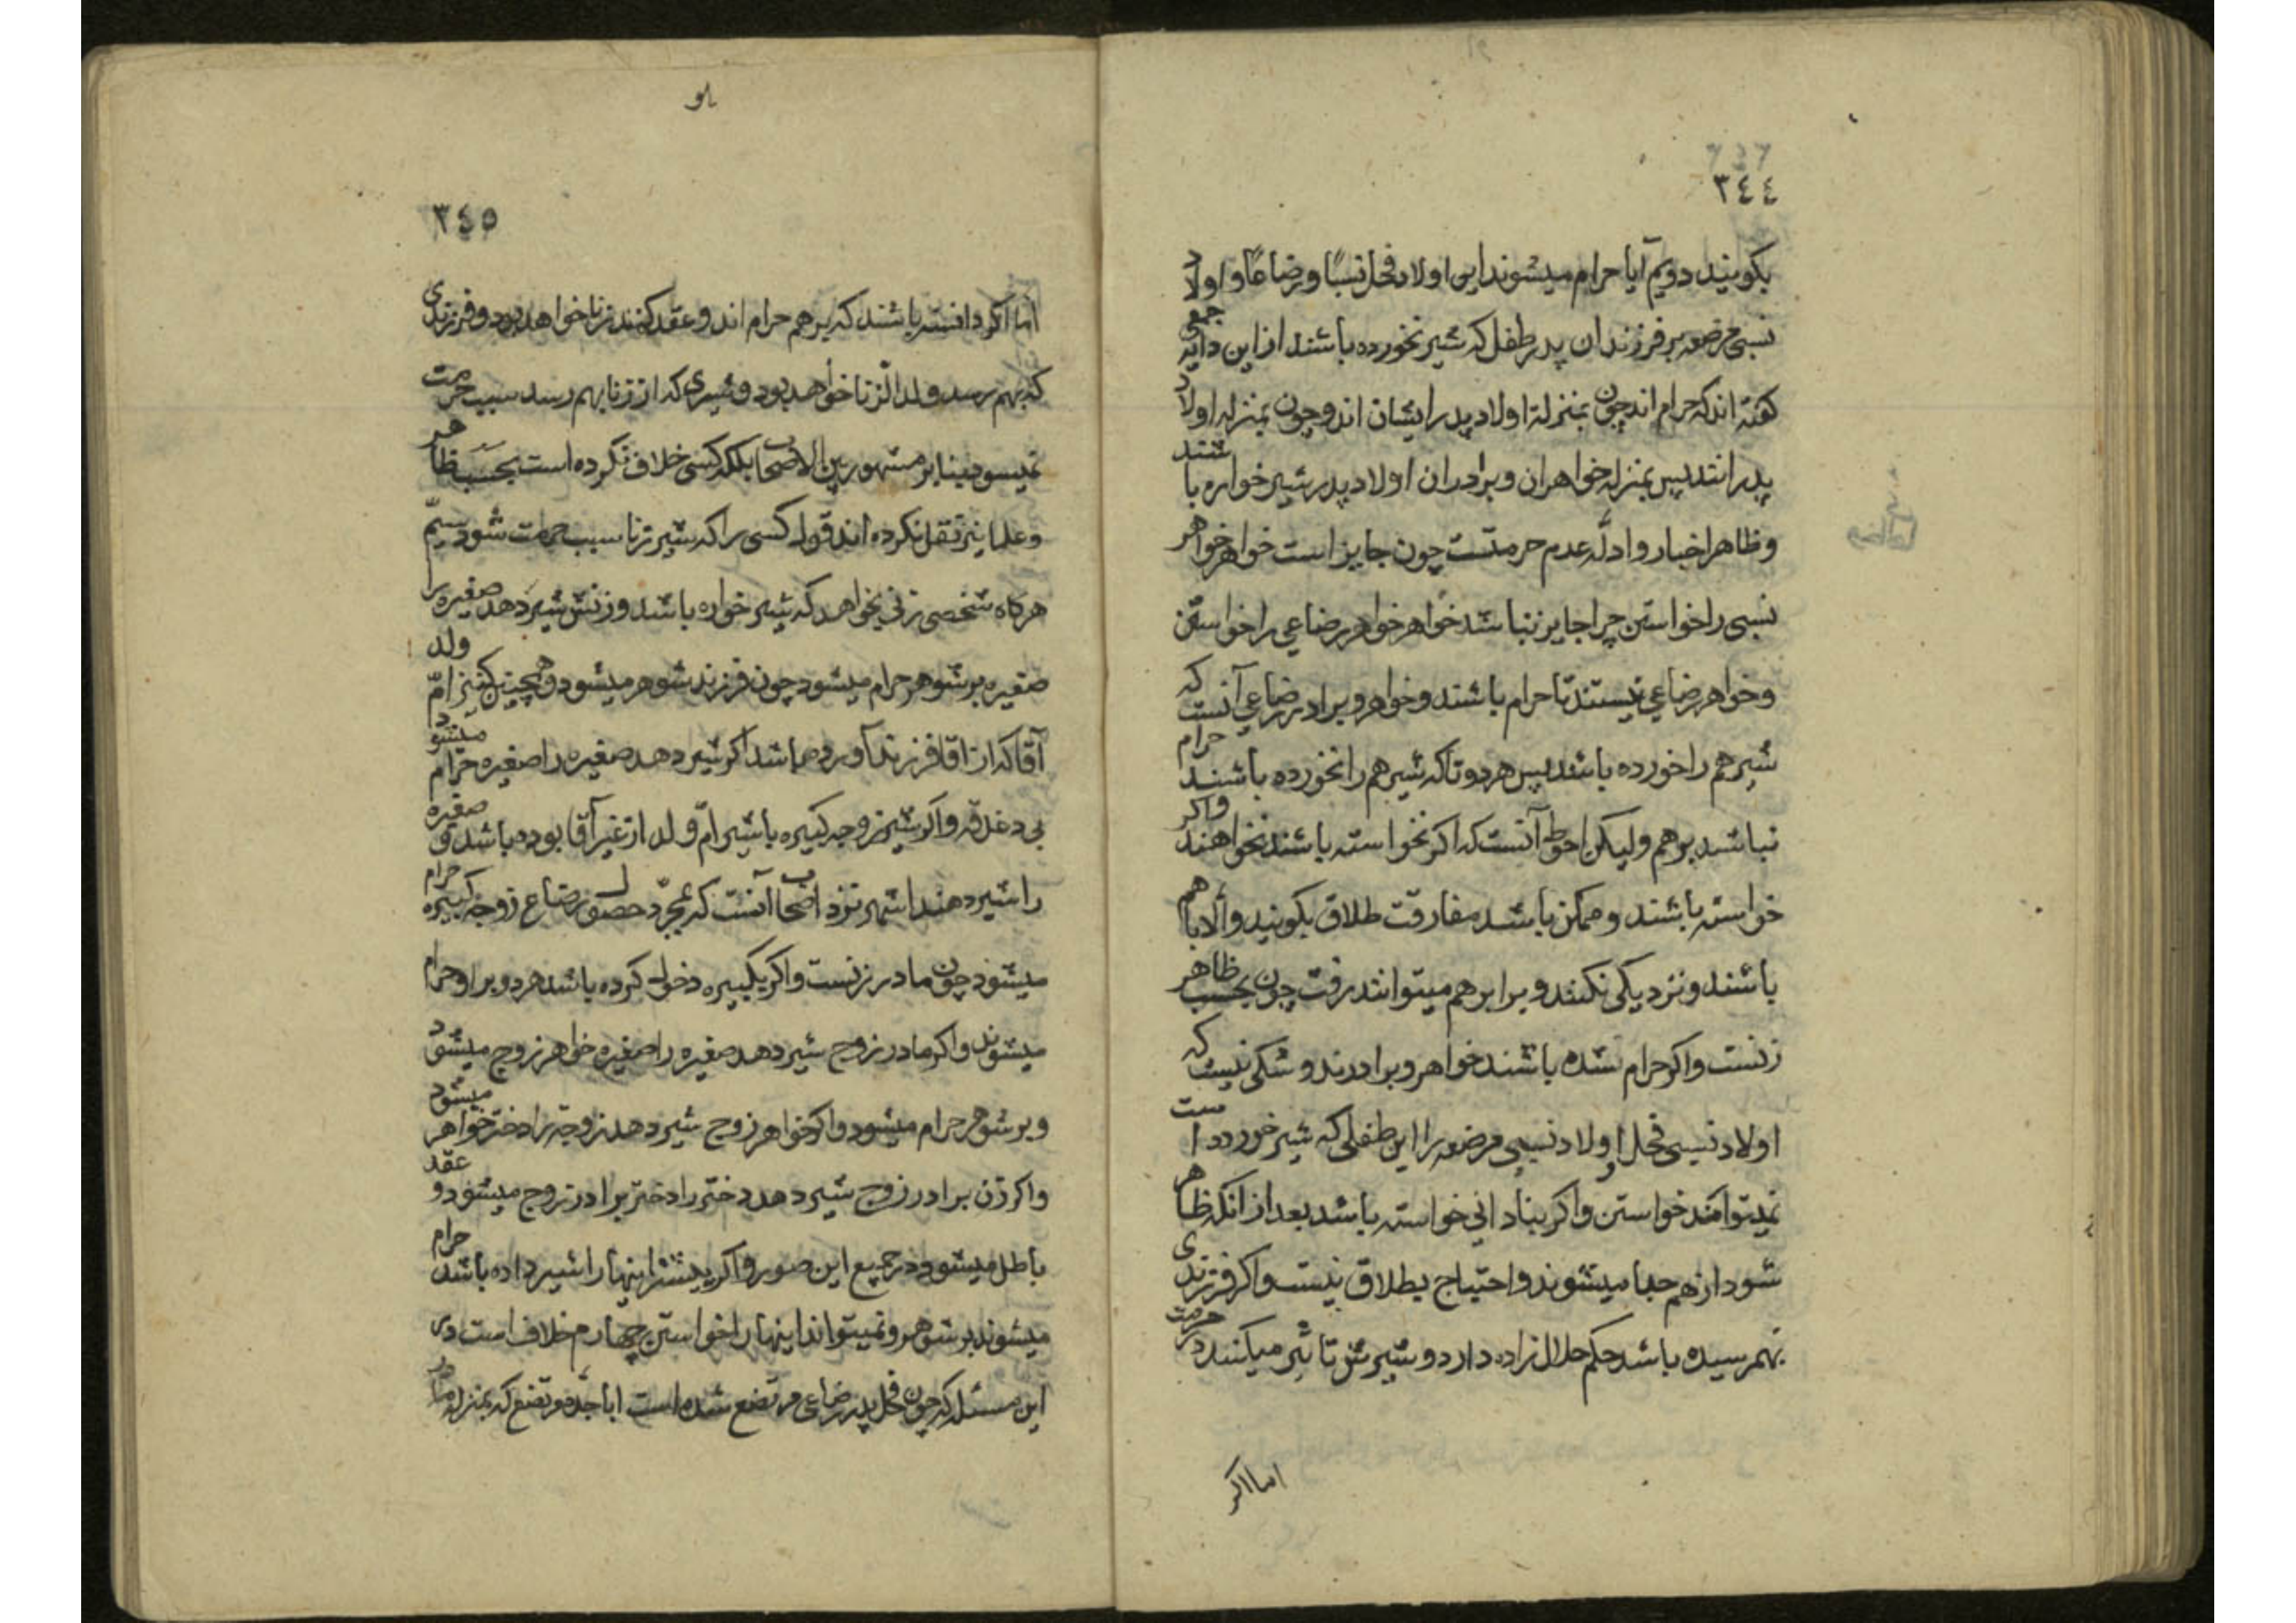 ٣٤٤
بکویند دویم آیا حرام میشوند این اولاد فحل نسبًا و رضاعًا و اولاد
نسبی مرضعه بر فرزندان پدر طفل که شیر نخورده باشند از این دایه جمعی
کفته اند که حرام اند چون بمنزلهٔ اولاد پدر ایشان اند و چون بمنزله اولاد
پدر انتد پس بمنزله خواهران و برادران اولاد پدر شیر خواره باشند
و ظاهر اخبار و ادلّه عدم حرمتست چون جایز است خواهر خواهر
نسبی را خواستن چرا جایز نباشد خواهر خواهر رضاعی را خواستن
و خواهر رضاعی نیستند تا حرام باشند و خواهر و برادر رضاعی آنست که
شیر هم را خورده باشند پس هر دو تا که شیر هم را نخورده باشند حرام
نباشند بر هم ولیکن احوط آنست که اکر نخواسته باشند نخواهند واکر
خواسته باشند و ممکن باشد مفارقت طلاق بکویند والّا با هم
باشند و نزدیکی نکنند و برابر هم میتوانند رفت چون بحسب ظاهر
زنست واکر حرام شده باشند خواهر و برادرند و شکی نیست که
اولاد نسبی فحل و اولاد نسبی مرضعه را این طفلی که شیر خورده است
نمیتوانند خواستن واکر بنادانی خواسته باشد بعد از انکه ظاهر
شود از هم جدا میشوند و احتیاج بطلاق نیست واکر فرزندی
بهم رسیده باشد حکم حلال زاده دارد و شیرش تاثیر میکند در حرمت
اما اکر
٣٤٥
اما اکر دانسته باشند که بر هم حرام اند و عقد کنند زنا خواهد بود و فرزندی
که بهم رسد ولد الزنا خواهد بود و شیری که از زنا بهم رسد سبب حرمت
نمیسود بنابر مشهور بین الاصحاب بلکه کسی خلاف نکرده است بحسب ظاهر
و علما نیز نقل نکرده اند قول کسی را که شیر زنا سبب حرمت شود سیّم
هر کاه شخصی زنی بخواهد که شیر خواره باشد و زنش شیر دهد صغیره را
صغیره بر شوهر حرام میشود چون فرزند شوهر میشود و همچنین کنیز امّ ولد
آقا که از اقا فرزند آورده باشد اکر شیر دهد صغیره را صغیره حرام میشود
بی دغدغه واکر شیر زوجه کبیره با شیر امّ ولد از غیر آقا بوده باشد و صغیره
را شیر دهند اشهر نزد اصحاب آنست که بمجرّد حصول رضاع زوجه کبیره حرام
میشود چون مادر زنست واکر بکبیره دخول کرده باشد هر دو بر او حرام
میشوند واکر مادر زوج شیر دهد صغیره را صغیره خواهر زوج میشود
و بر شوهر حرام میشود واکر خواهر زوج شیر دهد زوجه را دختر خواهر میشود
واکر زن برادر زوج شیر دهد دختر را دختر برادر زوج میشود و عقد
باطل میشود در جمیع این صور واکر پیشتر اینها را شیر داده باشد حرام
میشوند بر شوهر و نمیتواند اینها را خواستن چهارم خلاف است در
این مسئله که چون فحل پدر رضاعی مرتضع شده است ایا جدّه مرتضع که بمنزله مادر